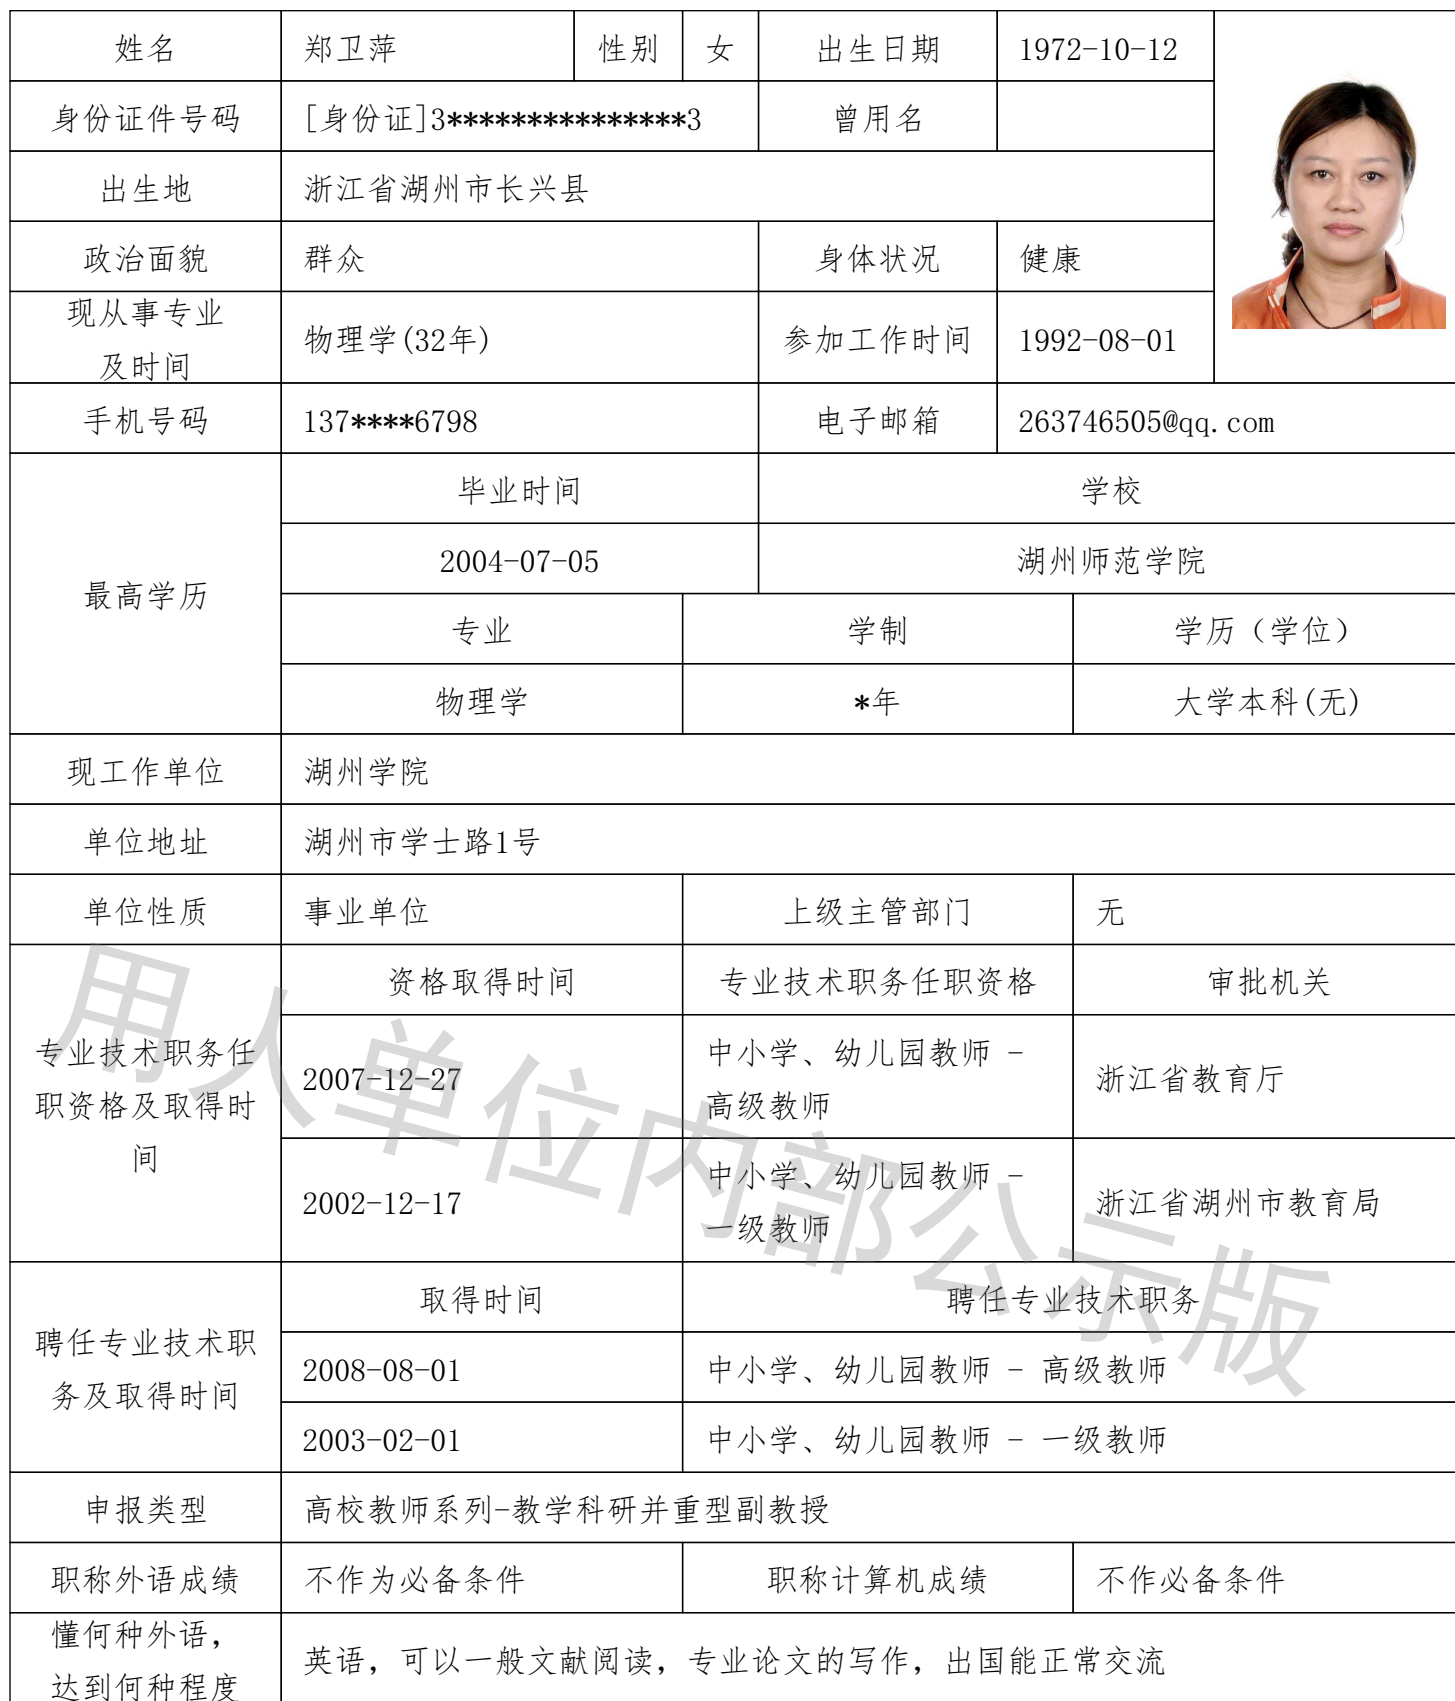 姓名 郑卫萍 性别 女 出生日期 1972-10-12
身份证件号码 [身份证]3***************3 曾用名
出生地 浙江省湖州市长兴县
政治面貌 群众 身体状况 健康
现从事专业
及时间
物理学(32年) 参加工作时间 1992-08-01
手机号码 137****6798 电子邮箱 263746505@qq.com
最高学历
毕业时间 学校
2004-07-05 湖州师范学院
专业 学制 学历（学位）
物理学 *年 大学本科(无)
现工作单位 湖州学院
单位地址 湖州市学士路1号
单位性质 事业单位 上级主管部门 无
专业技术职务任
职资格及取得时
间
资格取得时间 专业技术职务任职资格 审批机关
2007-12-27 中小学、幼儿园教师 -
高级教师
浙江省教育厅
2002-12-17 中小学、幼儿园教师 -
一级教师
浙江省湖州市教育局
聘任专业技术职
务及取得时间
取得时间 聘任专业技术职务
2008-08-01 中小学、幼儿园教师 - 高级教师
2003-02-01 中小学、幼儿园教师 - 一级教师
申报类型 高校教师系列-教学科研并重型副教授
职称外语成绩 不作为必备条件 职称计算机成绩 不作必备条件
懂何种外语，
达到何种程度
英语，可以一般文献阅读，专业论文的写作，出国能正常交流
用人单位内部公示版